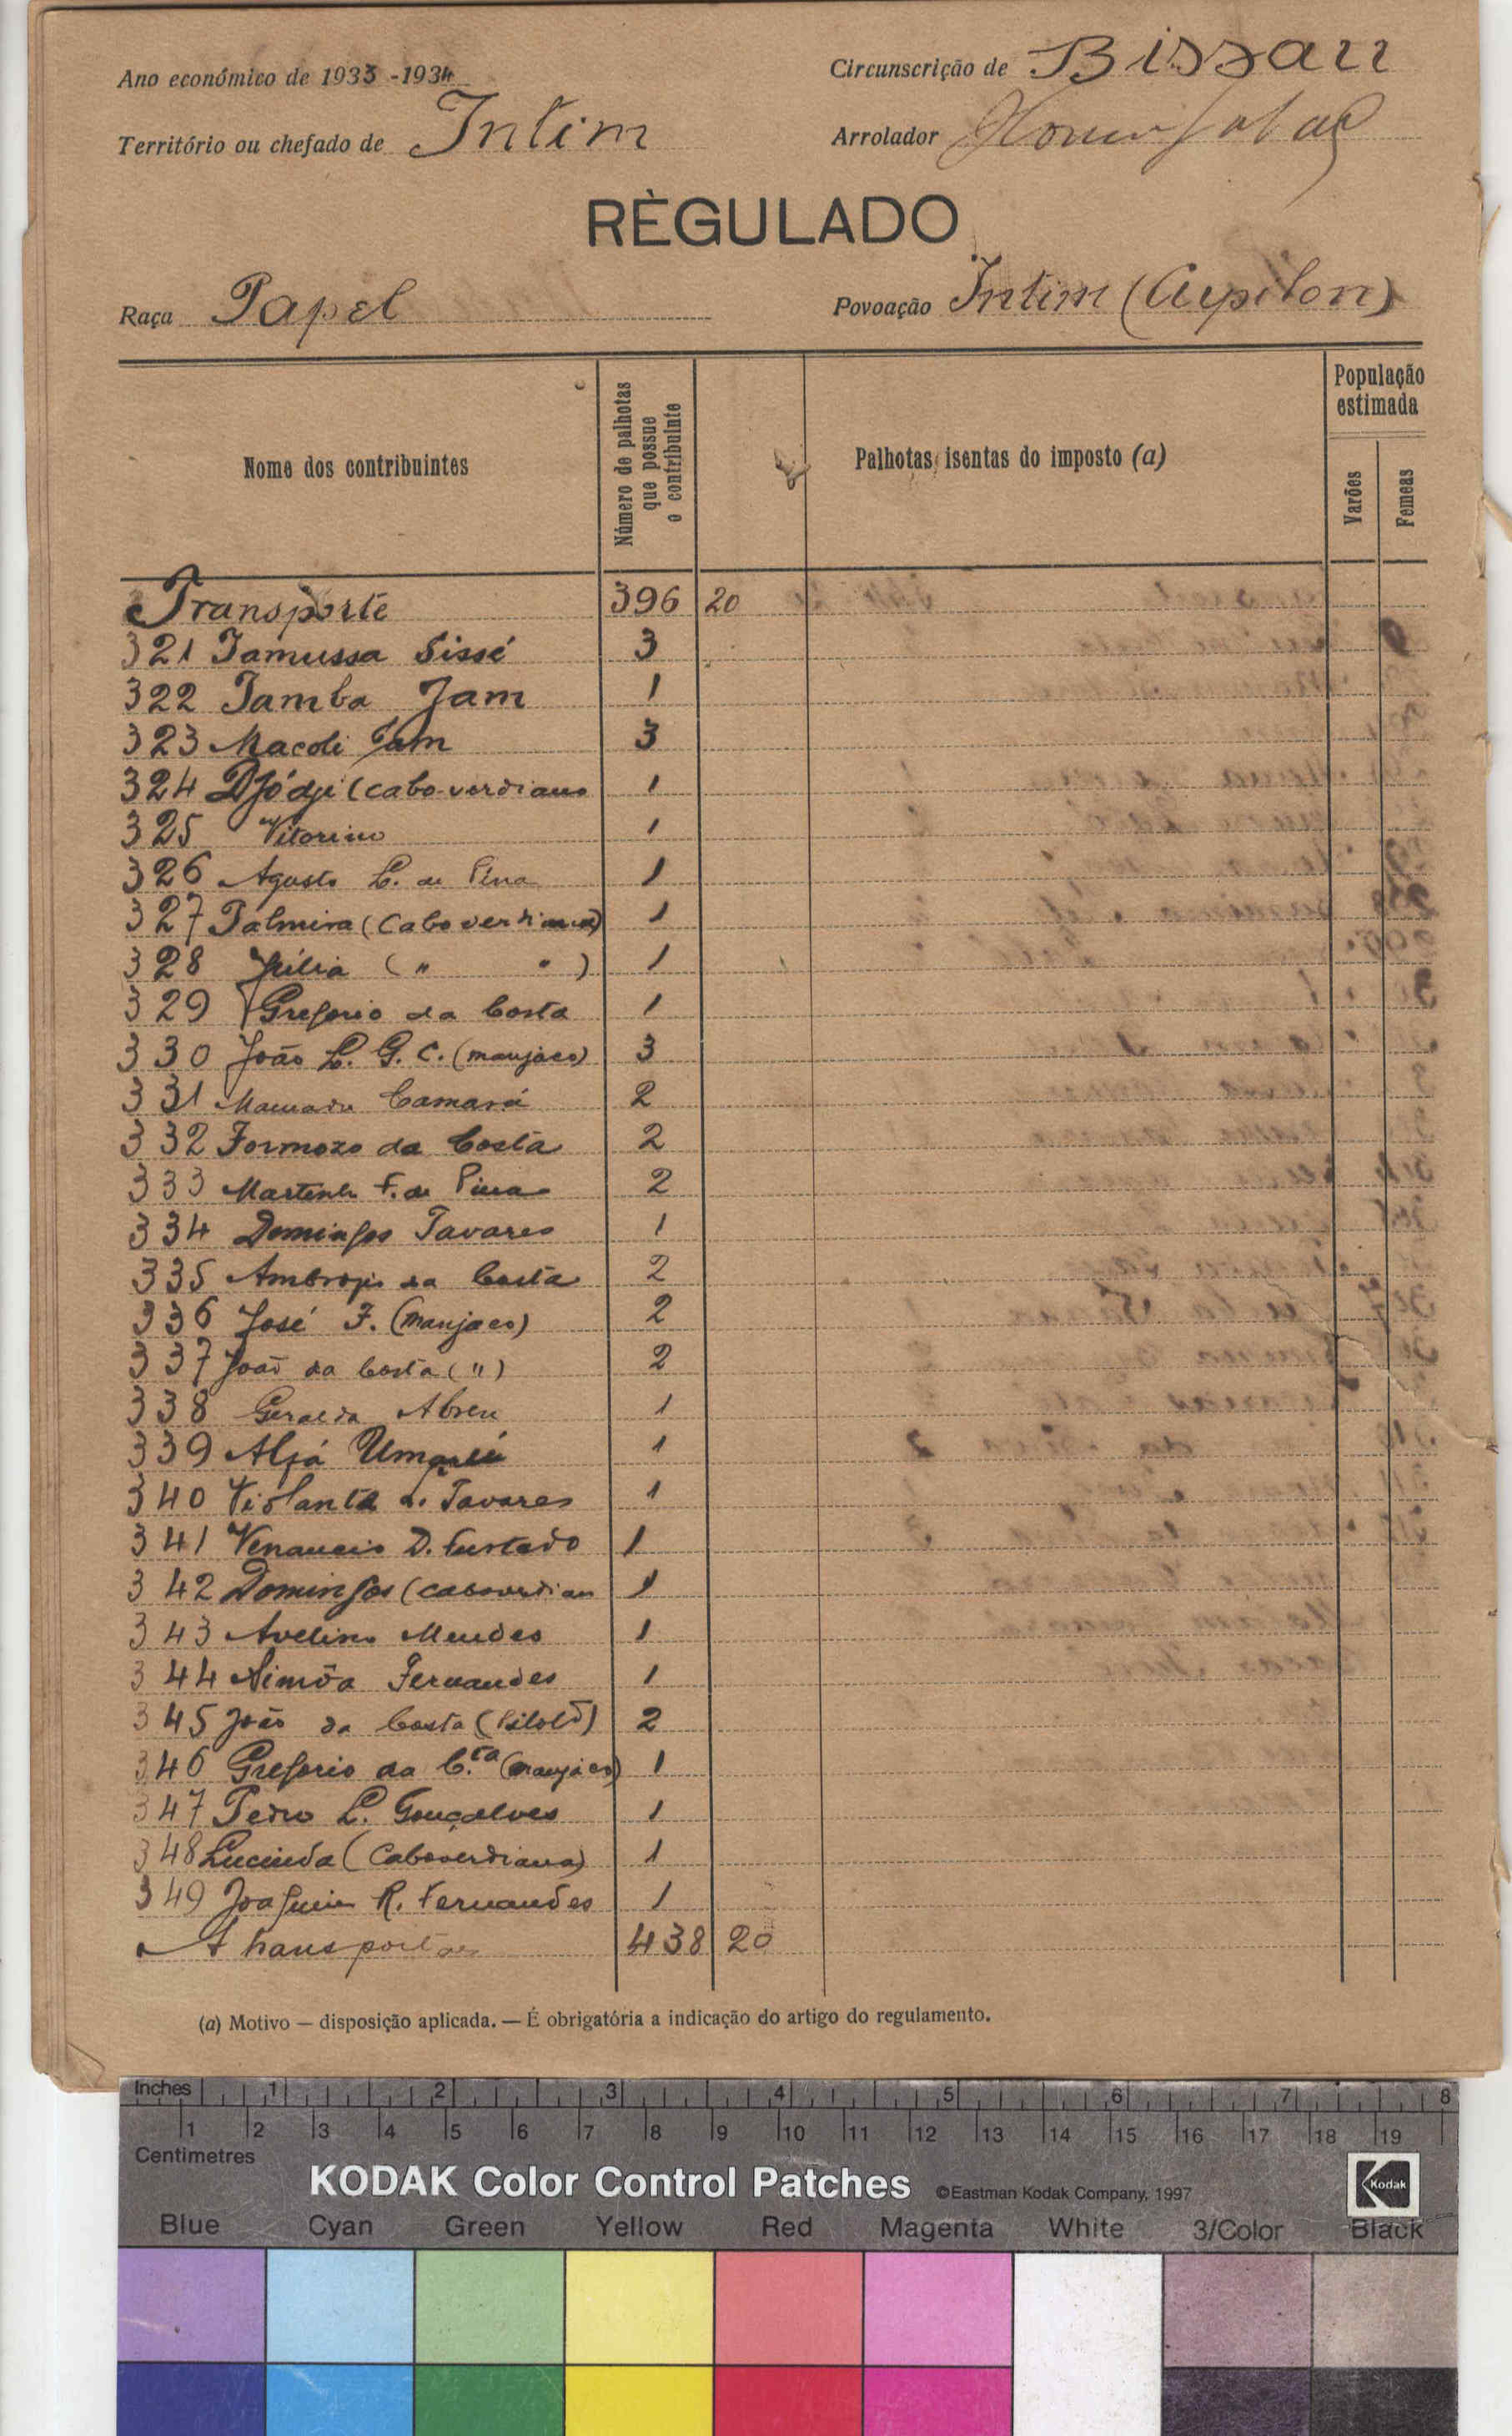 Ano económico de 1933-1934
Circunscrição de Bissau
Território ou chefado de Intim
Arrolador
RÈGULADO
Raça Papel
Povoação Intim (Cupilon)
Nome dos contribuintes
Número de palhotas que possue o contribuinte
Palhotas isentas do imposto (a)
População estimada
Varões
Femeas
Transporte 396 20
321 Jamussa Sissé 3
322 Jamba Jam 1
323 Macoli Jam 3
324 Djódji (cabo-verdiano 1
325 Vitorino 1
326 Agusto L. de Pina 1
327 Palmira (Caboverdiana) 1
328 Júlia (" ") 1
329 Gregorio da Costa 1
330 João L. G. C. (manjaco) 3
331 Mamadu Camará 2
332 Formozo da Costa 2
333 Martinho F. de Pina 2
334 Domingos Tavares 1
335 Ambrozio da Costa 2
336 José F. (Manjaco) 2
337 João da Costa (") 2
338 Geralda Abreu 1
339 Alfá Umarú 1
340 Violanta L. Tavares 1
341 Venancio D. Furtado 1
342 Domingos (caboverdian 1
343 Avelino Mendes 1
344 Simôa Fernandes 1
345 João da Costa (Piloto) 2
346 Gregorio da C.ta (manjaco) 1
347 Pedro L. Gonçalves 1
348 Lucinda (Caboverdiana) 1
349 Joaquim R. Fernandes 1
A transportar 438 20
(a) Motivo — disposição aplicada. — É obrigatória a indicação do artigo do regulamento.
Inches 1 2 3 4 5 6 7 8
1 2 3 4 5 6 7 8 9 10 11 12 13 14 15 16 17 18 19
Centimetres
KODAK Color Control Patches ©Eastman Kodak Company, 1997 Kodak
Blue Cyan Green Yellow Red Magenta White 3/Color Black